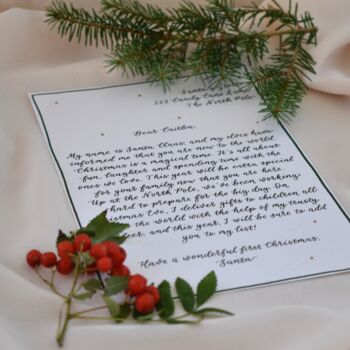 Santa
123 Candy Cane Lane
The North Pole
Dear Caitlin,
My name is Santa Claus, and my elves have
informed me that you are new to the world.
Christmas is a magical time. It's all about
fun, laughter, and spending time with the
ones we love. This year will be extra special
for your family now that you are here.
Up at the North Pole, we've been working
hard to prepare for the big day. On
Christmas Eve, I deliver gifts to children all
the world with the help of my trusty
and this year, I will be sure to add
you to my list!
Have a wonderful first Christmas,
Santa